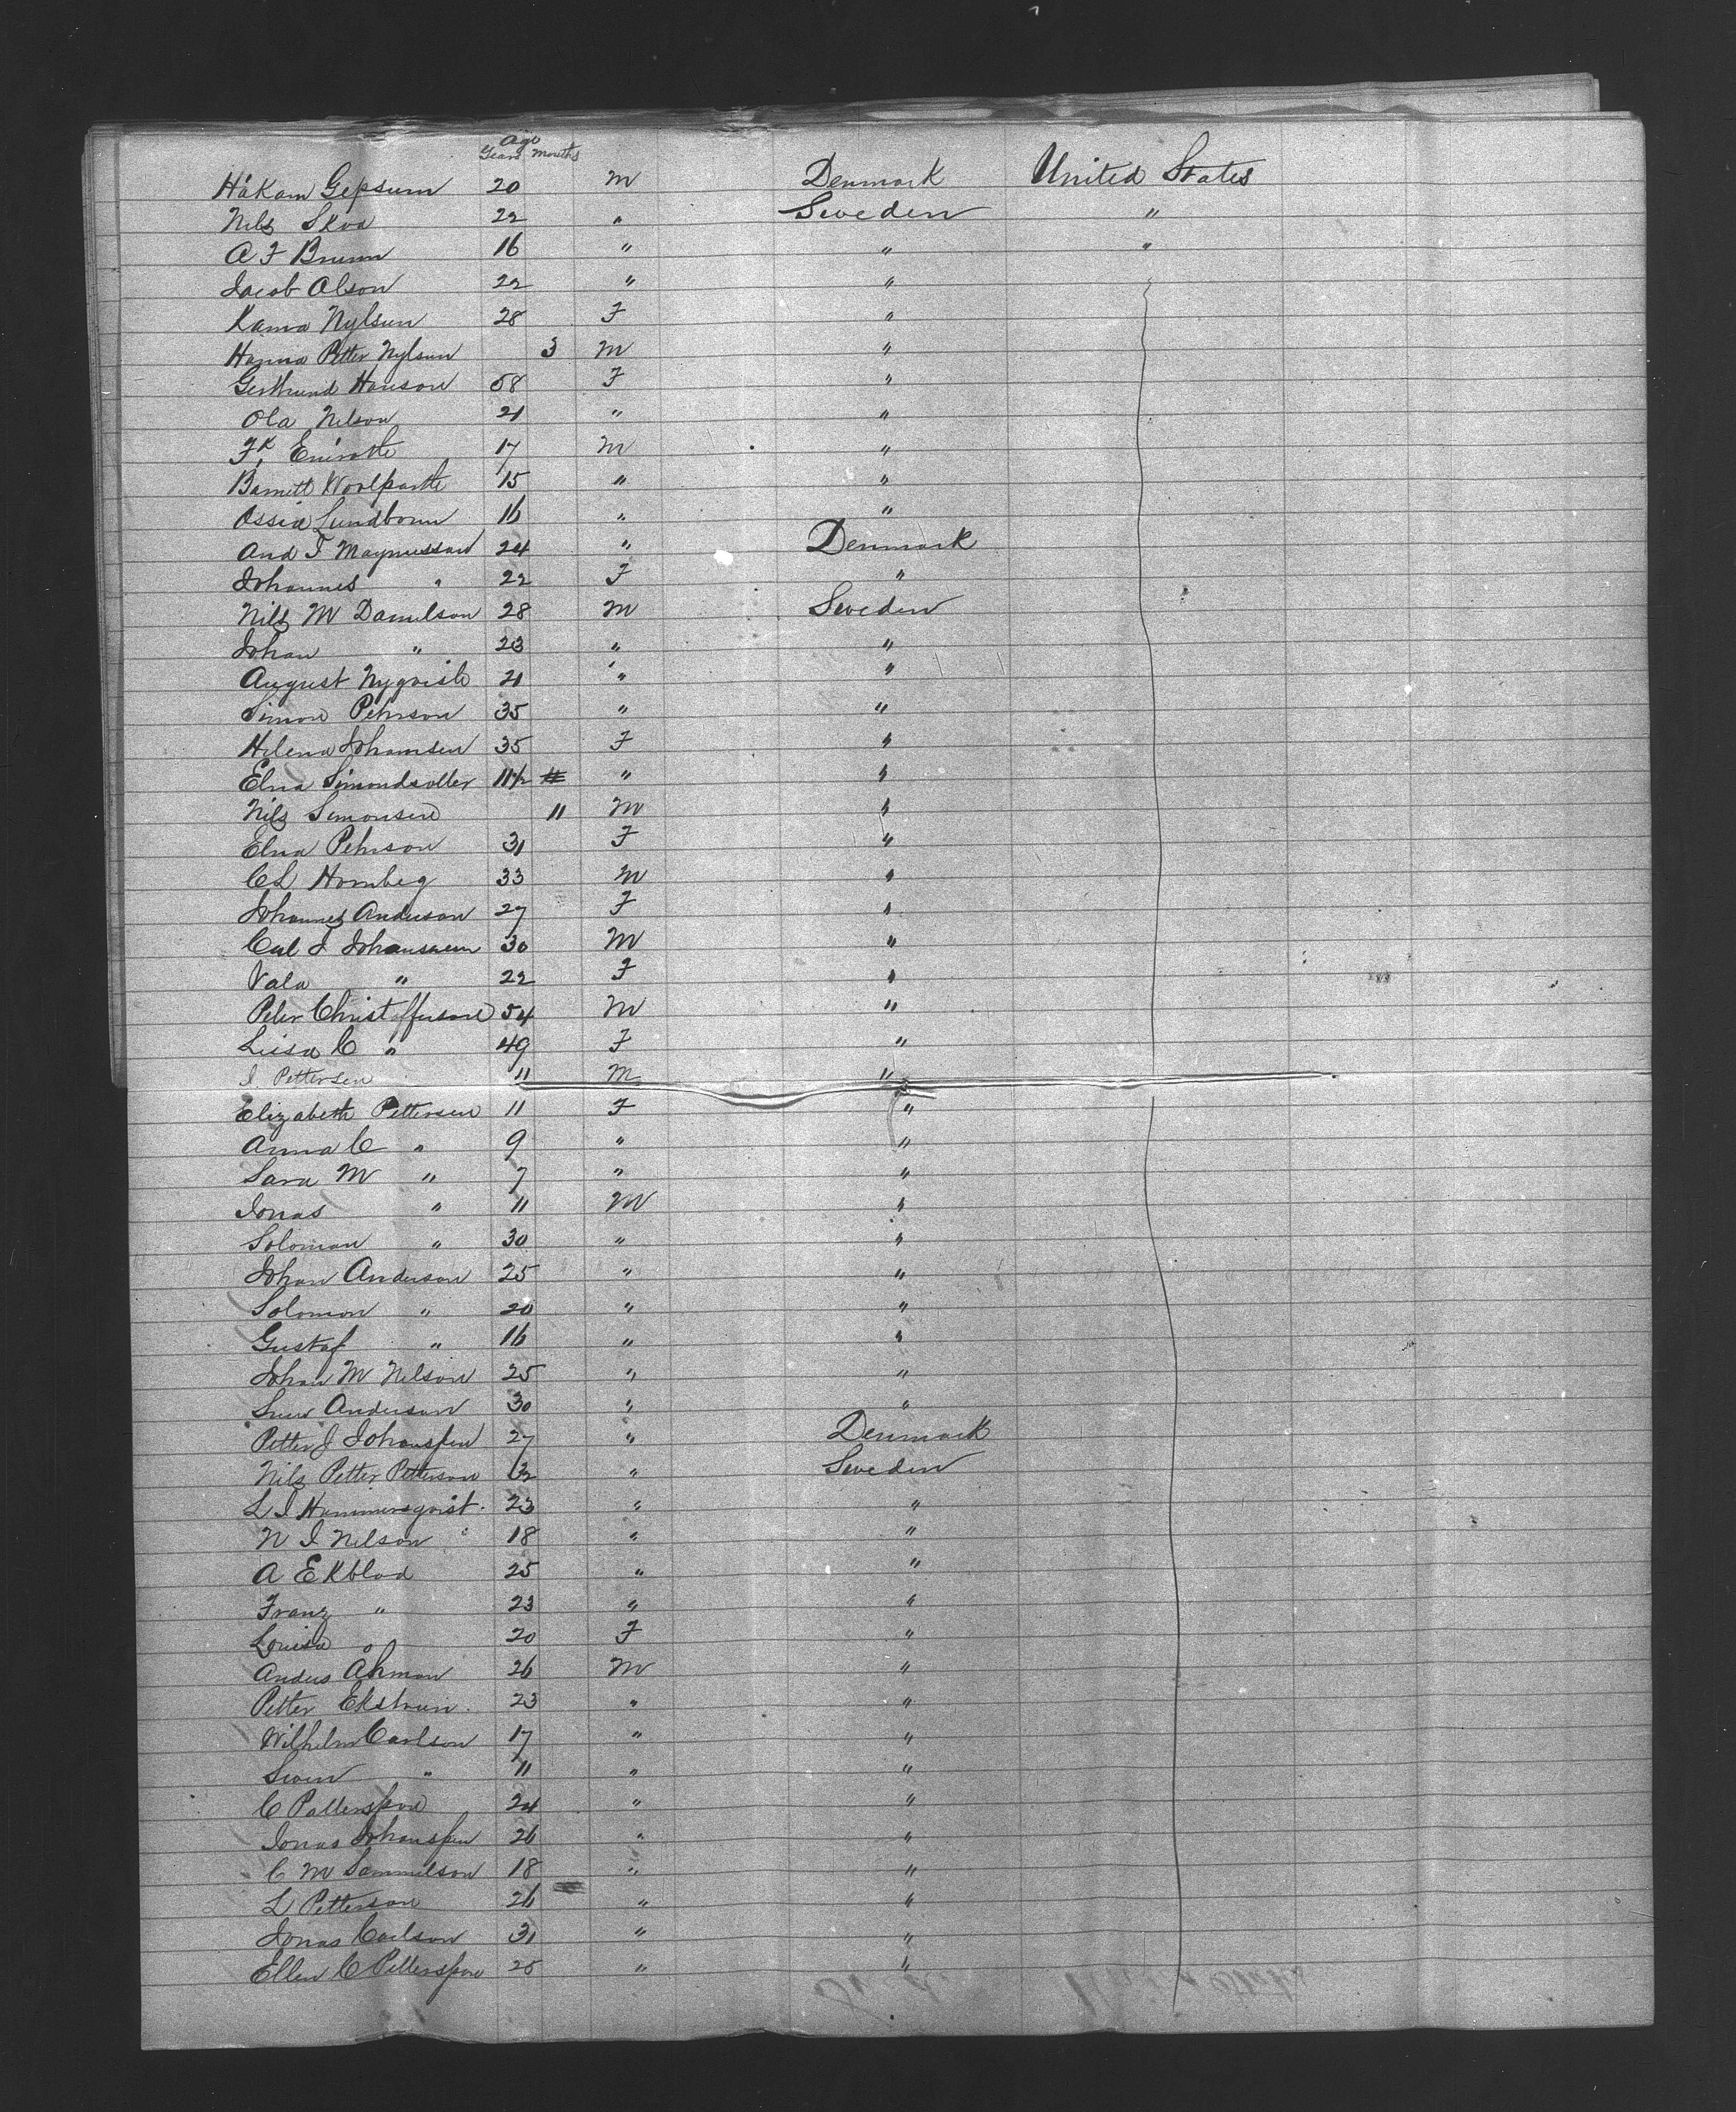 Age
Years Months
Håkam Gepsum 20 M Denmark United States
Nils Skoa 22 " Sweden "
A F Brunn 16 " " "
Jacob Olson 22 " "
Kama Nylsen 28 F "
Hanna Petter Nylsen 3 M "
Gerthrund Hanson 58 F "
Ola Nelson 21 " "
Fk 17 M "
Barnett Woolpartte 15 " "
Ossia Lundborn 16 " "
And J Magnusson 24 " Denmark
Johannes " 22 F "
Nils M Danielson 28 M Sweden
Johan " 23 " "
August Nyqvist 21 " "
Simon Pehrson 35 " "
Helena Johansen 35 F "
Elna Simondsotter 11 1/2 " "
Nils Simonsen 11 M "
Elna Pehrson 31 F "
C L Hornbeg 33 M "
Johannes Anderson 27 F "
Carl J Johansson 30 M "
Vala " 22 F "
Peter Christofferson 54 M "
Luisa C " 49 F "
J Pettersen 11 M "
Elizabeth Pettersen 11 F "
Anna C " 9 " "
Sara M " 7 " "
Jonas " 11 M "
Solomon " 30 " "
Johan Anderson 25 " "
Solomon " 20 " "
Gustaf " 16 " "
Johan M Nelson 25 " "
Sven Anderson 30 " "
Petter J Johanssen 27 " Denmark
Nils Petter Petterson 32 " Sweden
L J Hammersqvist 23 " "
N J Nelson 18 " "
A Ekblad 25 " "
Franz " 23 " "
Louisa " 20 F "
Anders Ahman 26 M "
Petter Ekstrom 23 " "
Wilhelm Carlson 17 " "
Swen " 11 " "
C Pattersson 24 " "
Jonas Johanssen 26 " "
C M Sammelson 18 " "
L Petterson 26 " "
Jonas Carlson 31 " "
Ellen C Pettersson 25 " "